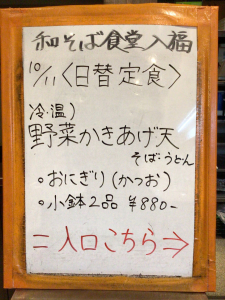 和そば食堂八福
10/11〈日替定食〉
冷・温)
野菜かきあげ天
そば・うどん
○おにぎり(かつお)
○小鉢2品 ¥880-
=入口こちら⇒